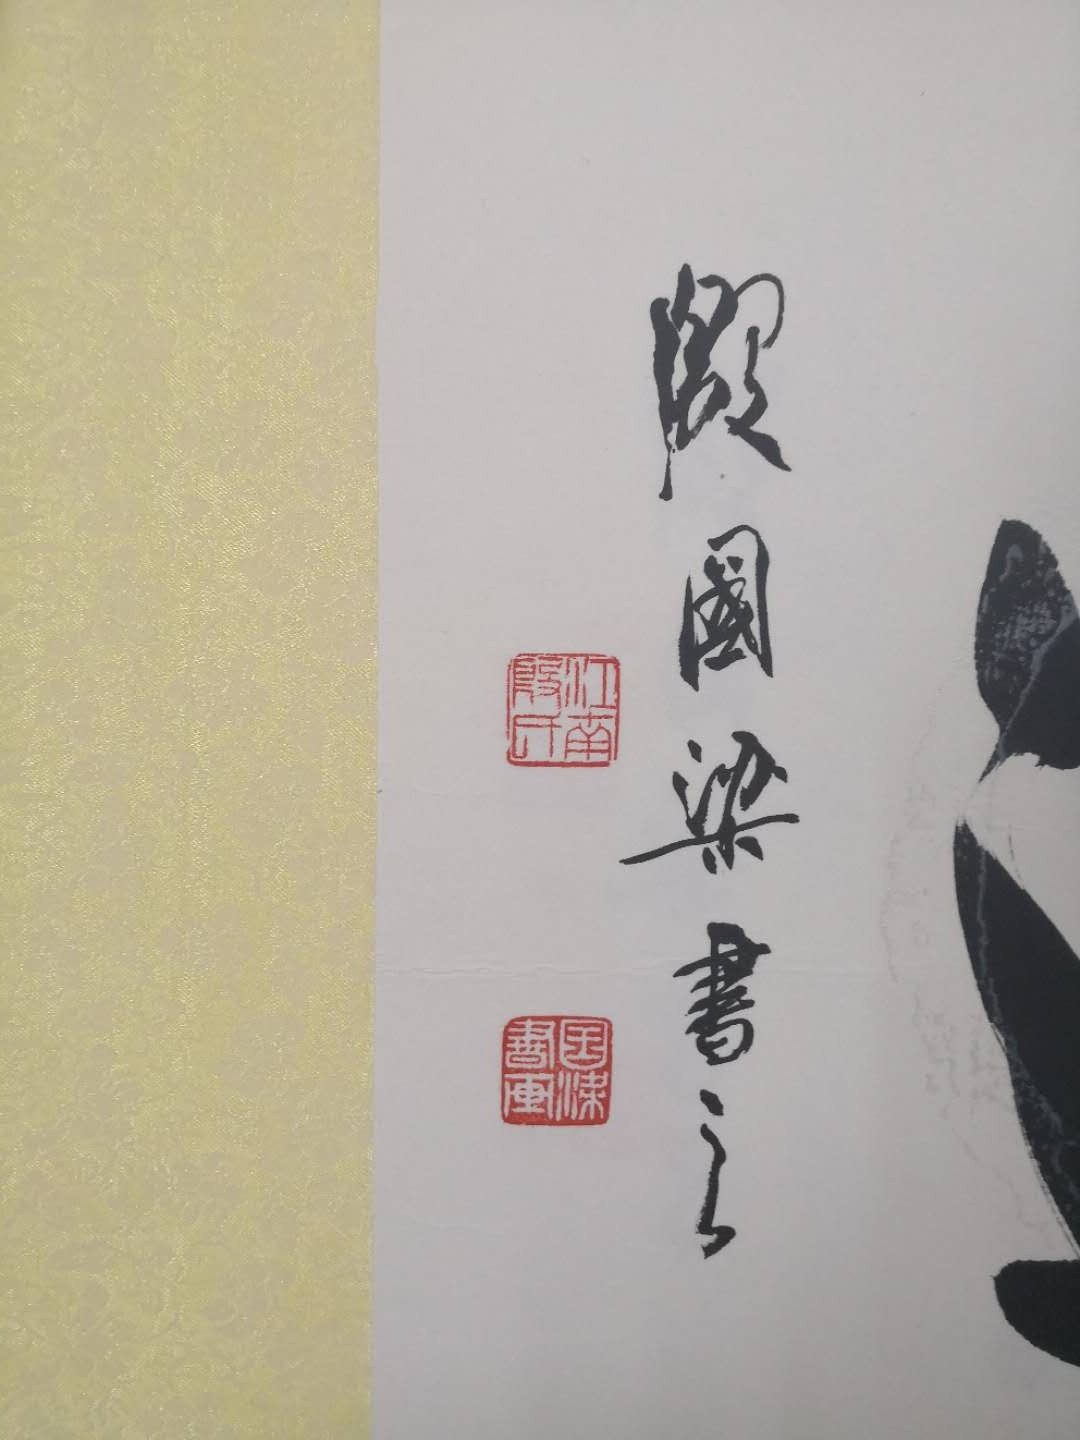 殷國梁書之
江南殷氏
国梁書画